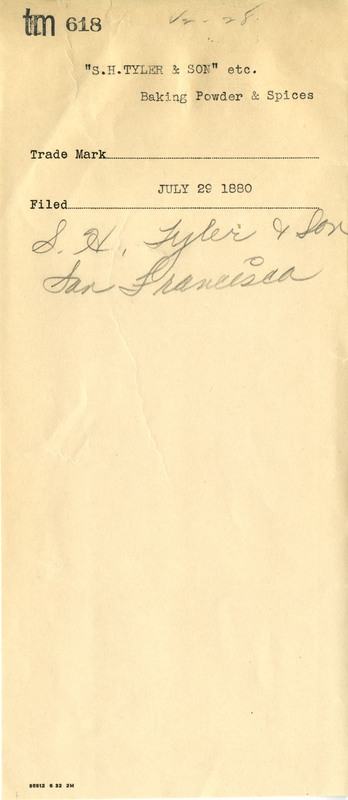 tm 618
"S.H.TYLER & SON" etc.
Baking Powder & Spices
Trade Mark
JULY 29 1880
Filed
S. H. Tyler & Son
San Francisco
95812 6 32 2M